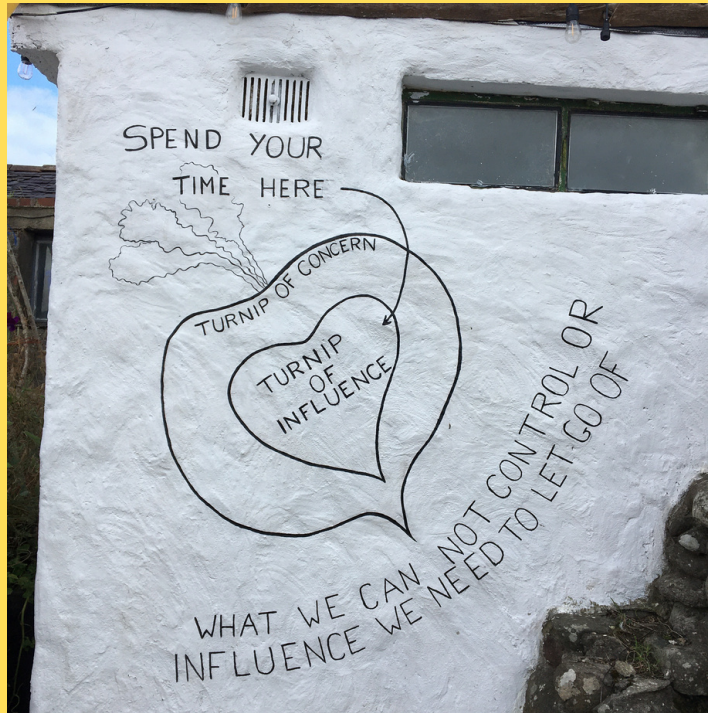 SPEND YOUR
TIME HERE
TURNIP OF CONCERN
TURNIP
OF
INFLUENCE
WHAT WE CAN NOT CONTROL OR
INFLUENCE WE NEED TO LET GO OF